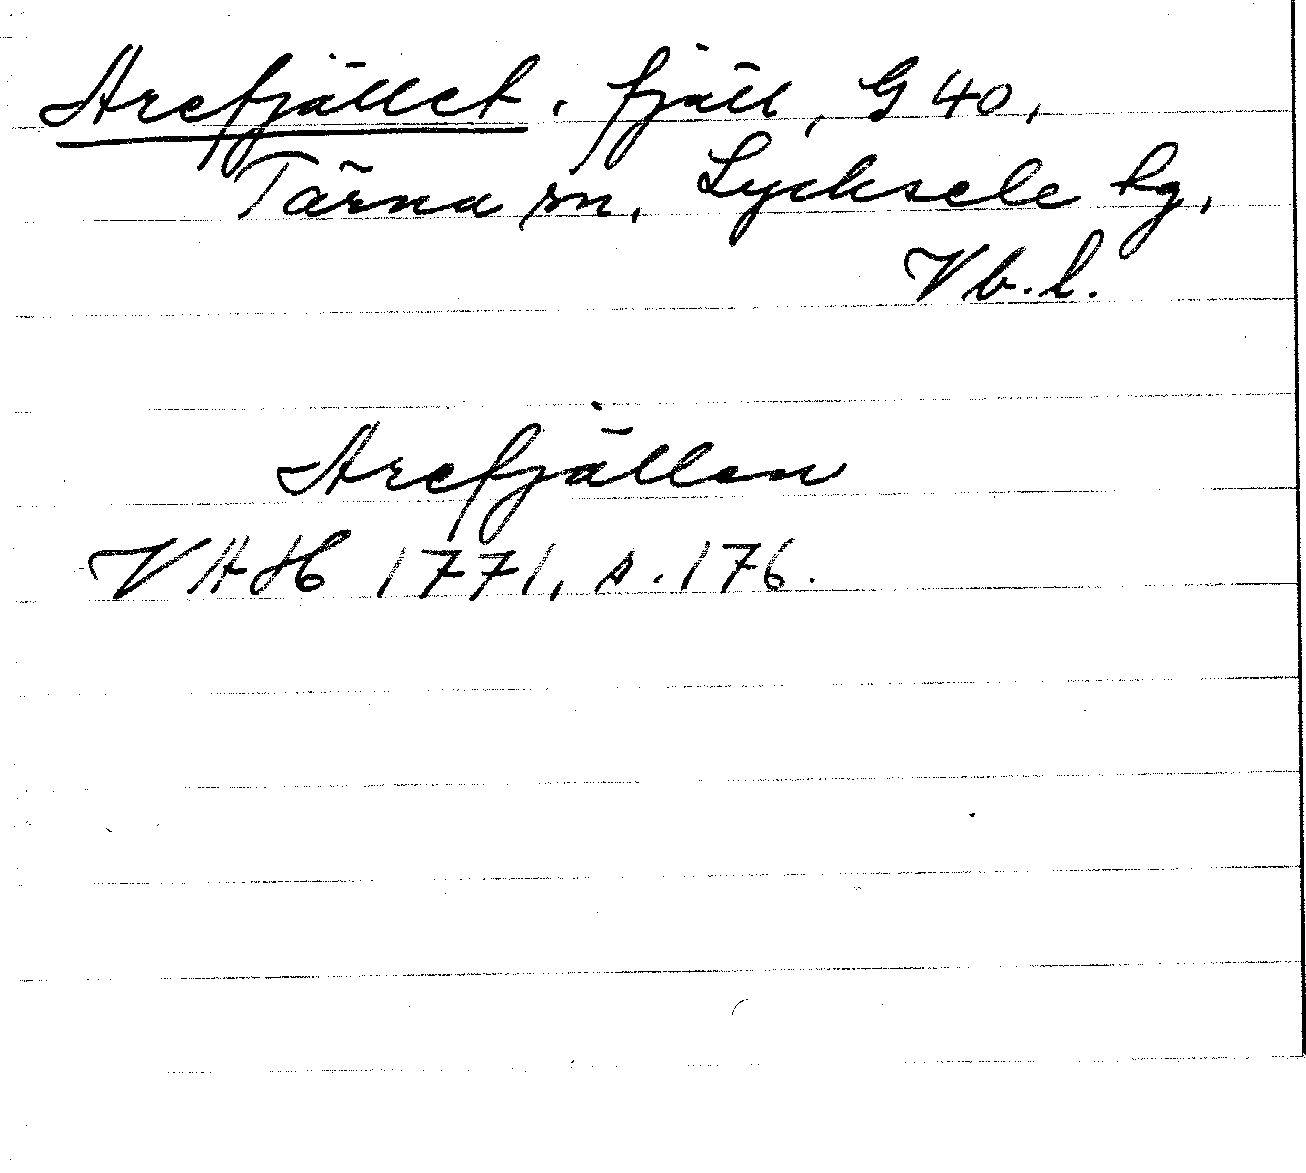 Arefjället, fjäll, G 40,
Tärna sn, Lycksele lg,
Vb. l.
Arefjällen
VAH 1771, s. 176.